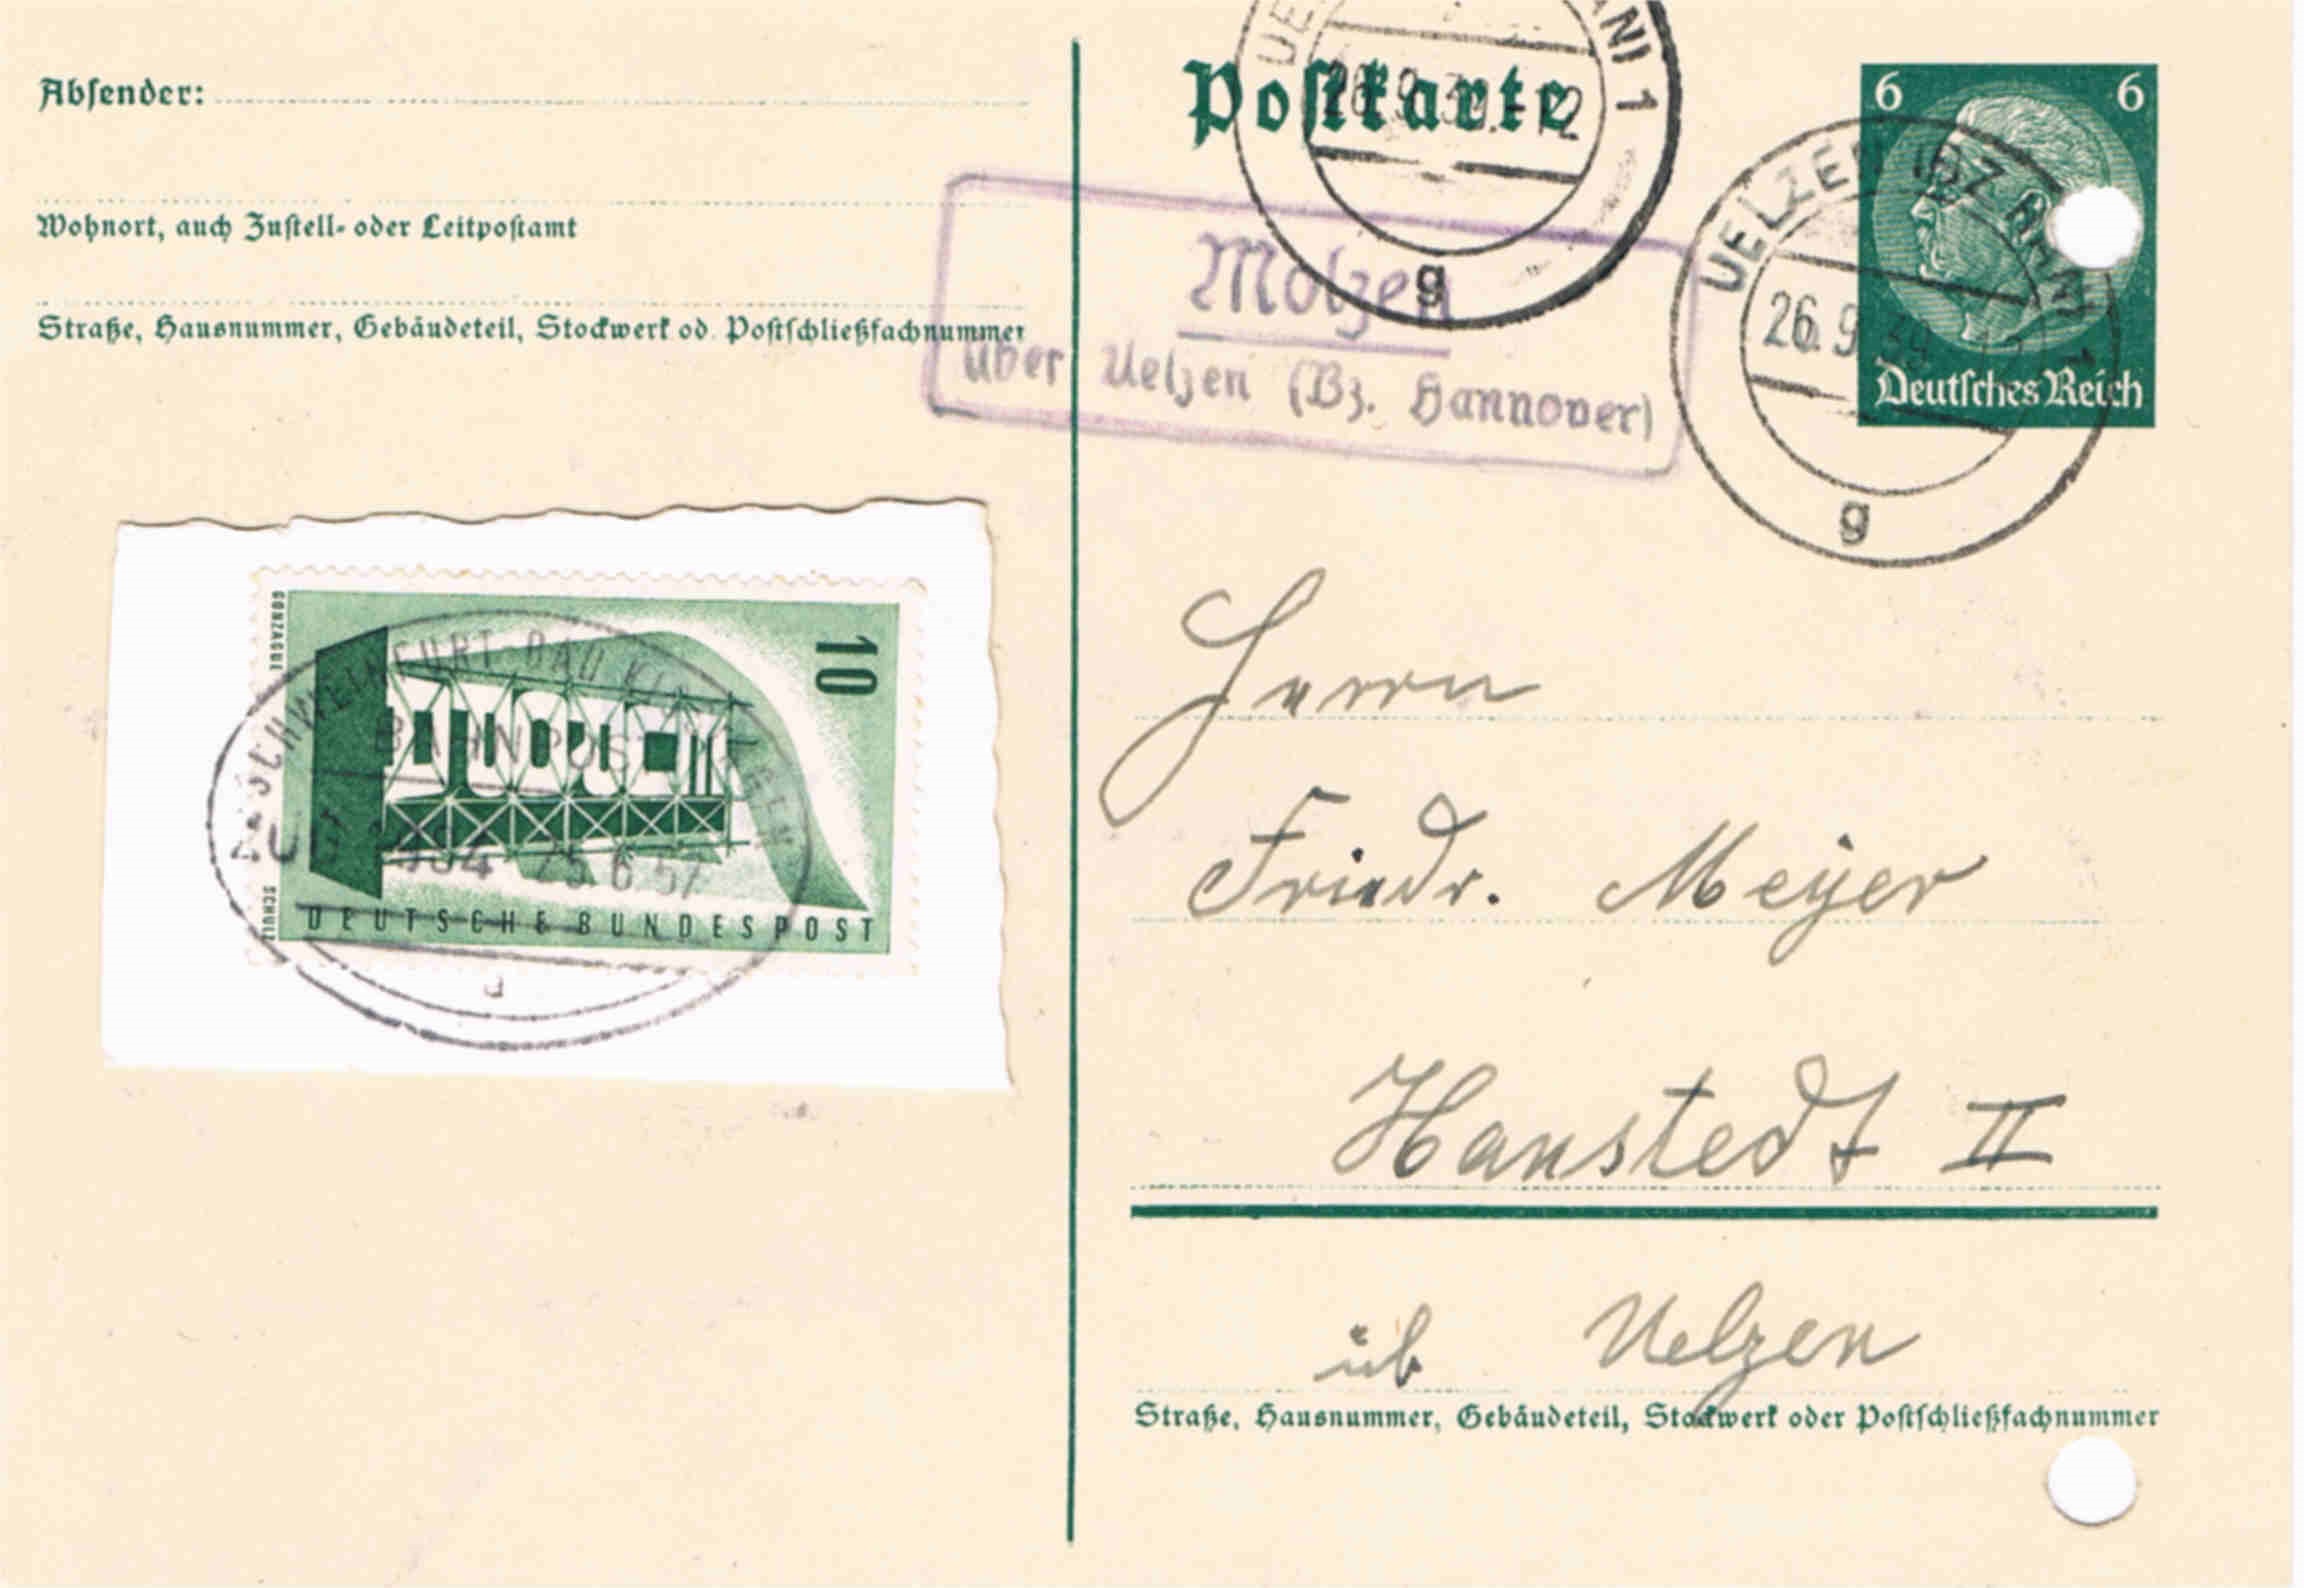 Absender:
Wohnort, auch Zustell- oder Leitpostamt
Straße, Hausnummer, Gebäudeteil, Stockwerk od. Postschließfachnummer
Postkarte
26.9.39.-12
g
Molzen
über Uelzen (Bz. Hannover)
6 6
Deutsches Reich
UELZEN (BZ HANN) 1
26.9.39
g
GONZAGUE
SCHULZ
10
EUROPA
DEUTSCHE BUNDESPOST
SCHWEINFURT-BAD KISSINGEN
BAHNPOST
25.6.57
Herrn
Friedr. Meyer
Hanstedt II
üb Uelzen
Straße, Hausnummer, Gebäudeteil, Stockwerk oder Postschließfachnummer